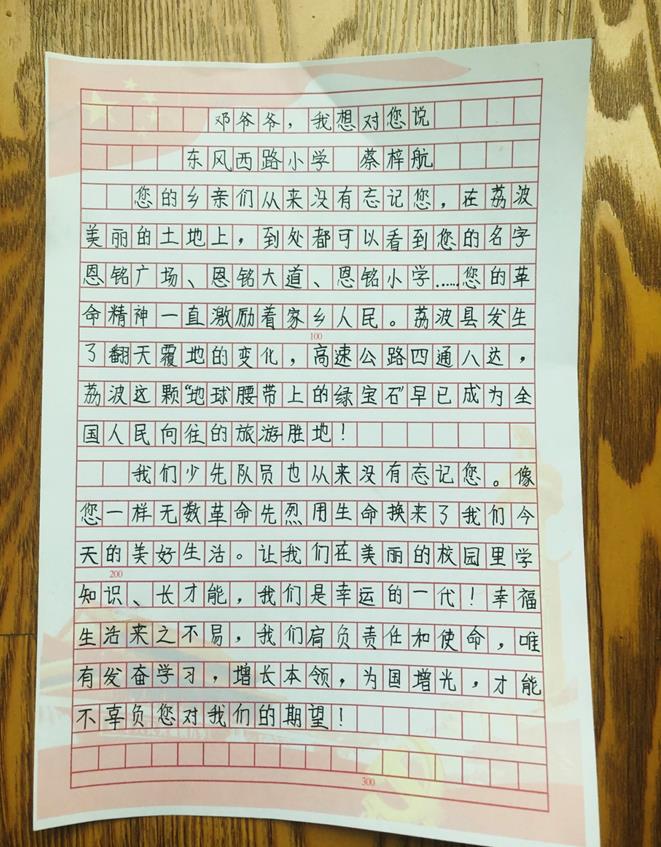 邓爷爷，我想对您说
东风西路小学 蔡梓航
您的乡亲们从来没有忘记您，在荔波
美丽的土地上，到处都可以看到您的名字
恩铭广场、恩铭大道、恩铭小学……您的革
命精神一直激励着家乡人民。荔波县发生
100
了翻天覆地的变化，高速公路四通八达，
荔波这颗“地球腰带上的绿宝石”早已成为全
国人民向往的旅游胜地！
我们少先队员也从来没有忘记您。像
您一样无数革命先烈用生命换来了我们今
天的美好生活。让我们在美丽的校园里学
200
知识、长才能，我们是幸运的一代！幸福
生活来之不易，我们肩负责任和使命，唯
有发奋学习，增长本领，为国增光，才能
不辜负您对我们的期望！
300